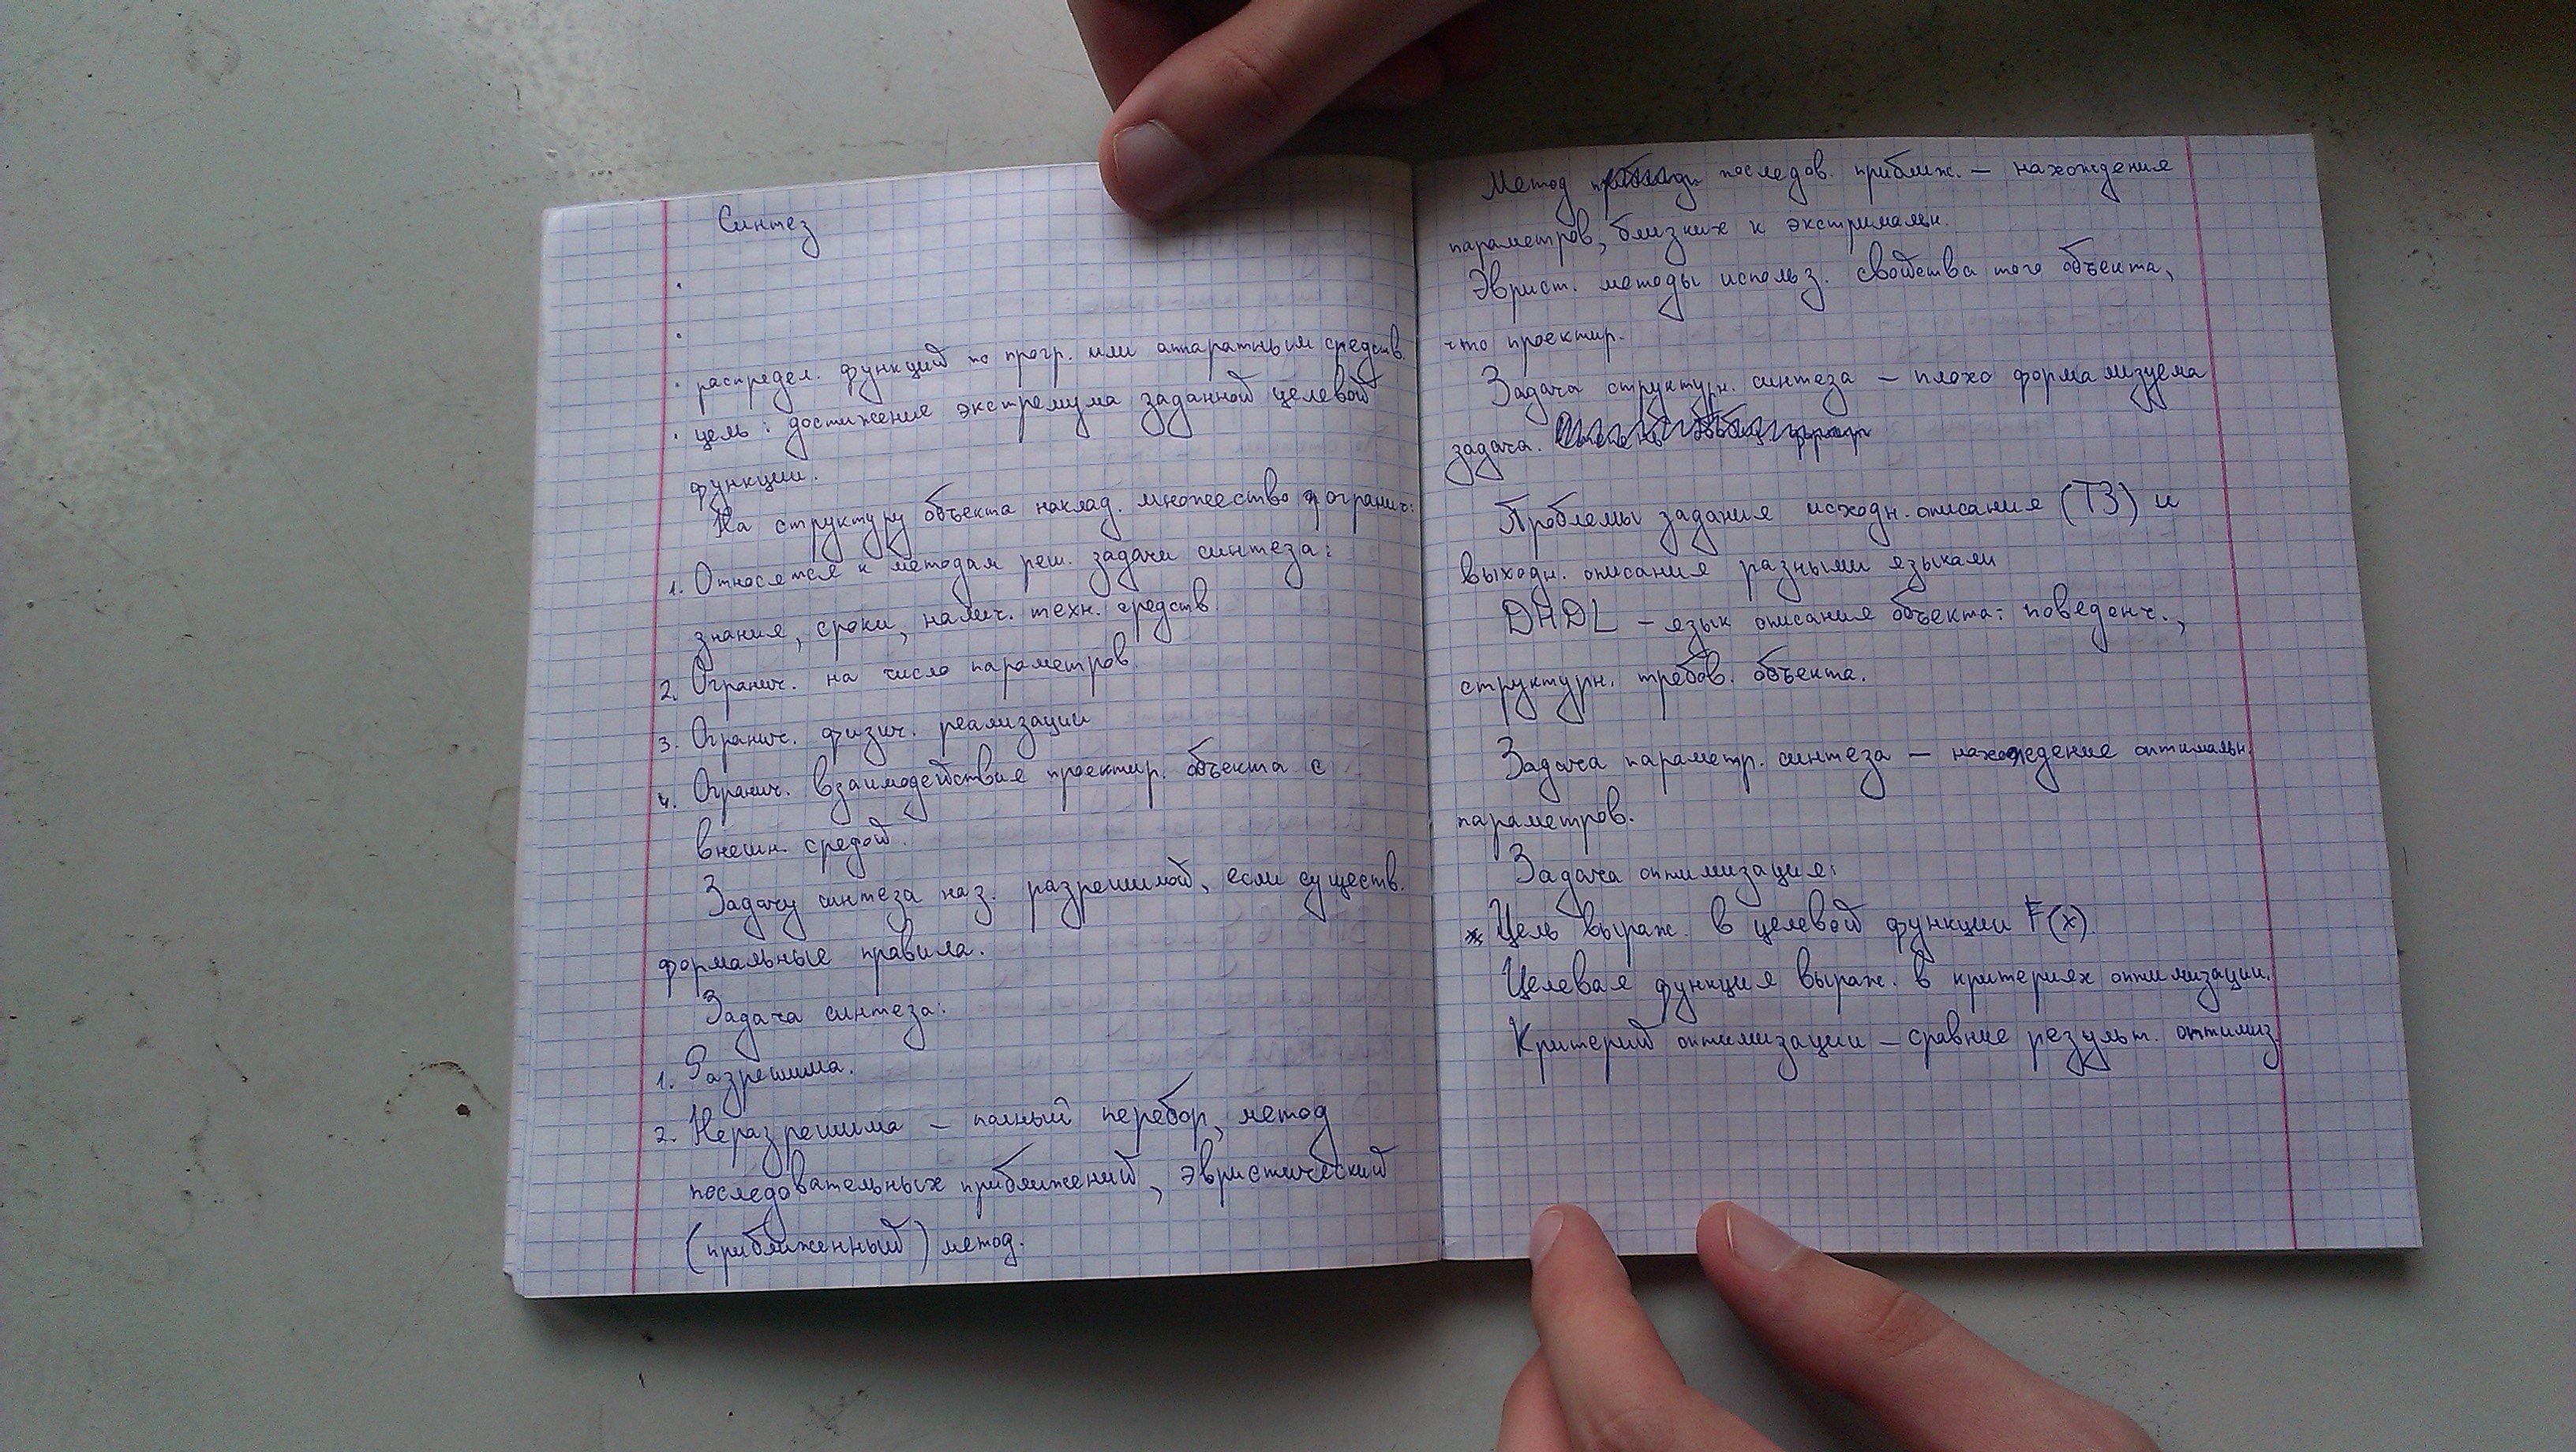 Синтез
·
·
· распредел. функций по прогр. или аппаратным средств.
· цель: достижение экстремума заданной целевой
функции.
На структуру объекта наклад. множество огранич:
1. Относятся к методам реш. задачи синтеза:
знания, сроки, налич. техн. средств
2. Огранич. на число параметров.
3. Огранич. физич. реализации
4. Огранич. взаимодействия проектир. объекта с
внешн. средой.
Задачу синтеза наз. разрешимой, если существ.
формальные правила.
Задача синтеза:
1. Разрешима.
2. Неразрешима – полный перебор, метод
последовательных приближений, эвристический
(приближенный) метод.
Метод последов. приближ. – нахождения
параметров, близких к экстримальн.
Эврист. методы использ. свойства того объекта,
что проектир.
Задача структурн. синтеза – плохо формализуема
задача.
Проблемы задания исходн. описания (ТЗ) и
выходн. описания разными языками
DHDL – язык описания объекта: поведенч.,
структурн. требов. объекта.
Задача параметр. синтеза – нахождение оптимальн.
параметров.
Задача оптимизация:
* Цель выраж. в целевой функции F(x).
Целевая функция выраж. в критериях оптимизации.
Критерий оптимизации – сравние результ. оптимиз.